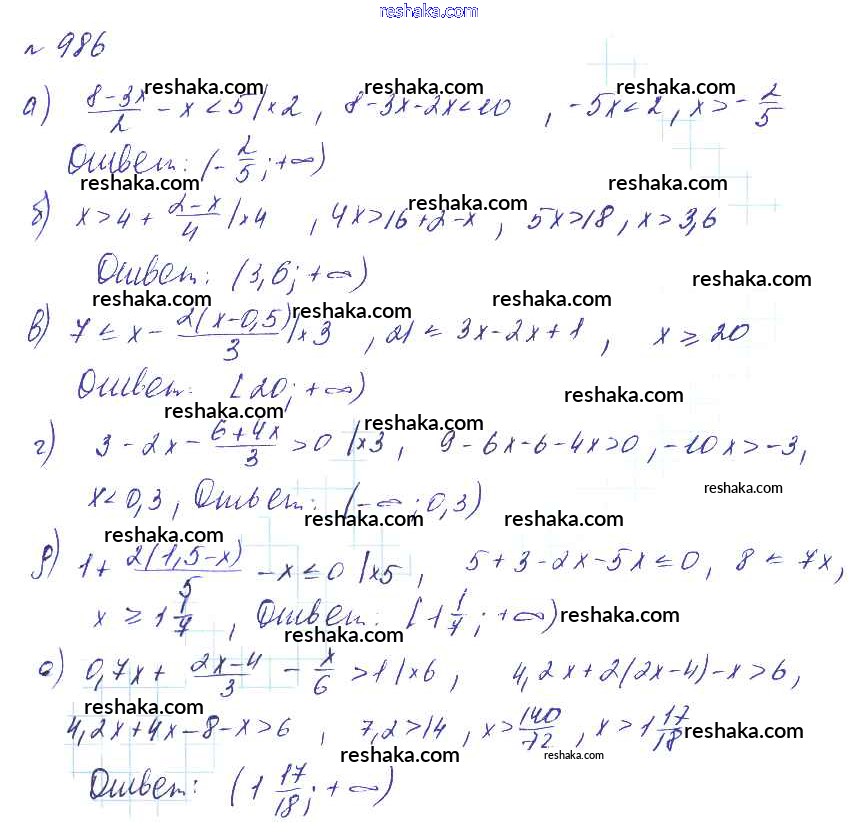 reshaka.com
№ 986
а) (8-3x)/2 - x < 5 |×2, 8-3x-2x<10, -5x<2, x>-2/5
Ответ: (-2/5; +∞)
б) x>4+(2-x)/4 |×4, 4x>16+2-x, 5x>18, x>3,6
Ответ: (3,6; +∞)
в) 7 ≤ x - 2(x-0,5)/3 |×3, 21 ≤ 3x-2x+1, x ≥ 20
Ответ: [20; +∞)
г) 3-2x-(6+4x)/3 >0 |×3, 9-6x-6-4x>0, -10x>-3,
x<0,3, Ответ: (-∞; 0,3)
д) 1+2(1,5-x)/5 - x ≤ 0 |×5, 5+3-2x-5x≤0, 8 ≤ 7x,
x ≥ 1 1/7, Ответ: [1 1/7; +∞)
е) 0,7x+(2x-4)/3 - x/6 >1 |×6, 4,2x+2(2x-4)-x>6,
4,2x+4x-8-x>6, 7,2>14, x>140/72, x>1 17/18
Ответ: (1 17/18; +∞)
reshaka.com reshaka.com reshaka.com
reshaka.com reshaka.com
reshaka.com
reshaka.com reshaka.com reshaka.com
reshaka.com
reshaka.com reshaka.com
reshaka.com
reshaka.com reshaka.com reshaka.com
reshaka.com
reshaka.com
reshaka.com
reshaka.com reshaka.com
reshaka.com reshaka.com